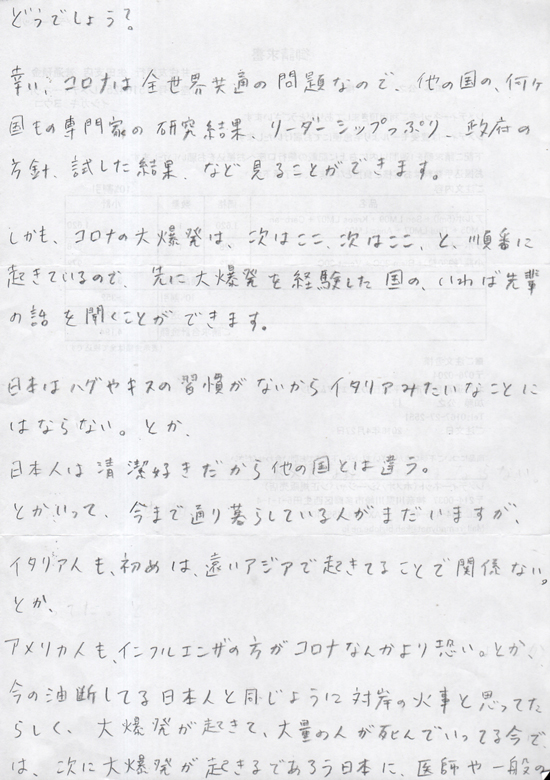 どうでしょう?
幸い、コロナは全世界共通の問題なので、他の国の、何ヶ
国もの専門家の研究結果、リーダーシップっぷり、政府の
方針、試した結果、など見ることができます。
しかも、コロナの大爆発は、次はここ、次はここ、と、順番に
起きているので、先に大爆発を経験した国の、いわば先輩
の話を聞くことができます。
日本はハグやキスの習慣がないからイタリアみたいなことに
はならない。とか、
日本人は清潔好きだから他の国とは違う。
とかいって、今まで通り暮らしている人がまだいますが、
イタリア人も、初めは、遠いアジアで起きてることで関係ない。
とか、
アメリカ人も、インフルエンザの方がコロナなんかより恐い。とか、
今の油断してる日本人と同じように対岸の火事と思ってた
らしく、大爆発が起きて、大量の人が死んでいってる今で
は、次に大爆発が起きるであろう日本に、医師や一般の